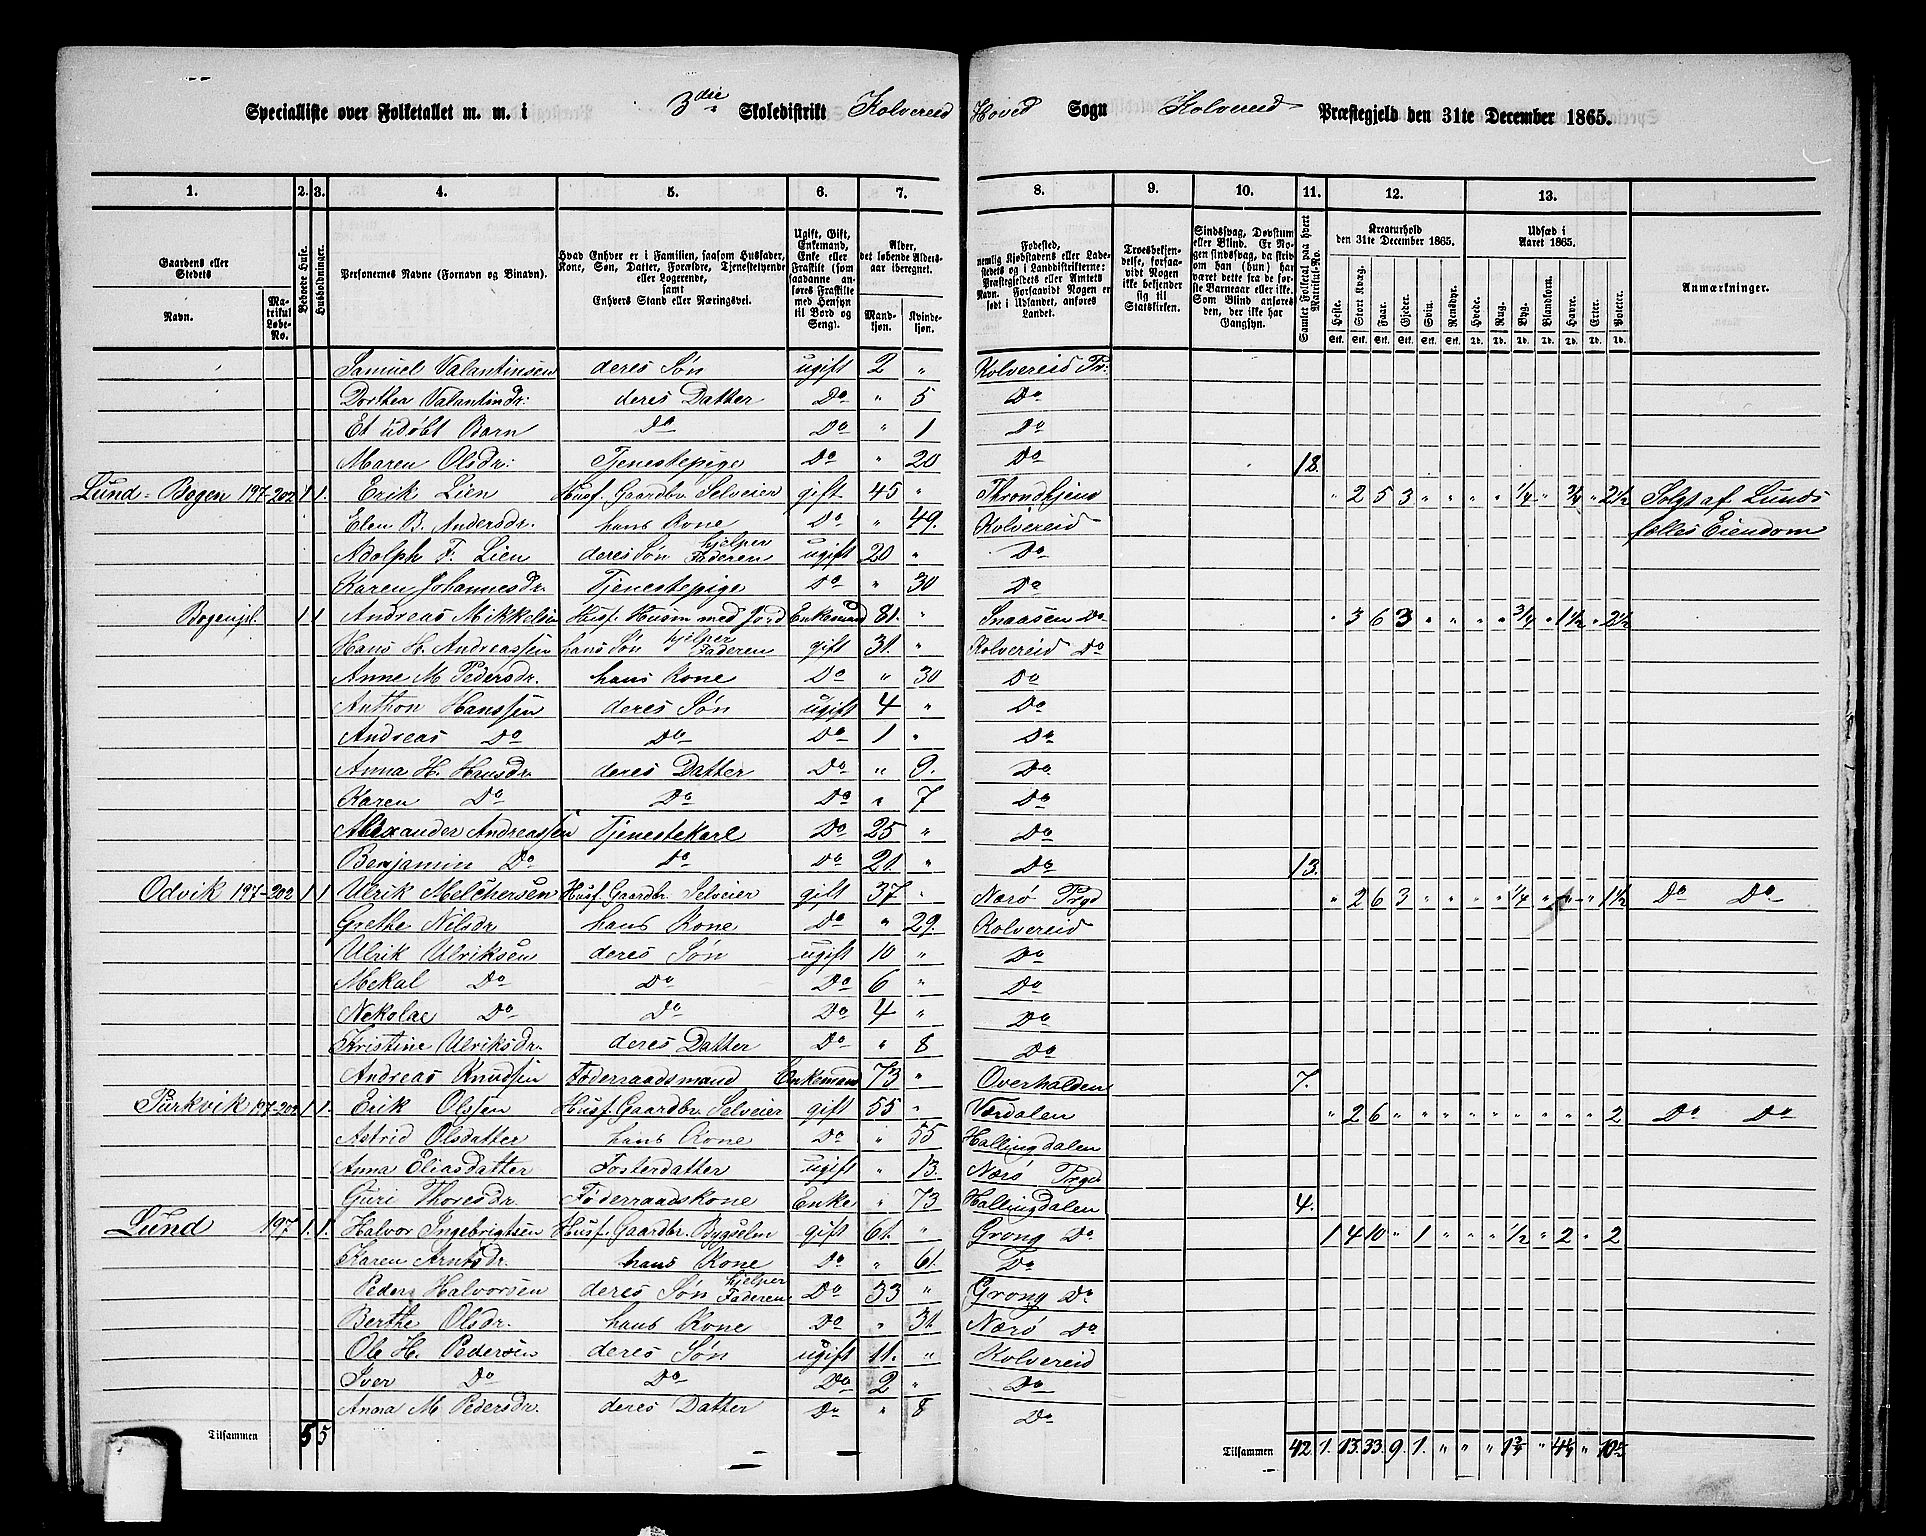 Specialliste over Folketallet m. m. i 3die Skoledistrikt Kolvereid Hoved Sogn Kolvereid Præstegjeld den 31te December 1865.
1. 2. 3. 4. 5. 6. 7. 8. 9. 10. 11. 12. 13.
Gaardens eller Stedets Navn. Matrikul Løbe-No. Beboede Huse. Husholdninger. Personernes Navne (Fornavn og Binavn). Hvad Enhver er i Familien, saasom Husfader, Kone, Søn, Datter, Forældre, Tjenestetyende eller Logerende, samt Enhvers Stand eller Næringsvei. Ugift, Gift, Enkemand, Enke eller Fraskilt (som saadanne anføres Fraskilte med Hensyn til Bord og Seng). Alder, det løbende Aldersaar iberegnet. Mandkjøn. Kvindekjøn.
Fødested, nemlig Kjøbstadens eller Ladestedets og i Landdistrikterne: Præstegjeldets eller Amtets Navn. Forsaavidt Nogen er født i Udlandet, anføres Landet. Troesbekjendelse, forsaavidt Nogen ikke bekjender sig til Statskirken. Sindssvag, Døvstum eller Blind. Er Nogen sindssvag, da skrives om han (hun) har været dette fra de første Barneaar eller ikke. Som Blind anføres den, der ikke har Gangsyn. Samlet Folketal paa hvert Matrikul-No. Kreaturhold den 31te December 1865. Heste. Stort Kvæg. Faar. Gjeder. Svin. Rensdyr. Udsæd i Aaret 1865. Hvede. Rug. Byg. Blandkorn. Havre. Erter. Poteter. Anmærkninger.
Samuel Valantinsen deres Søn ugift 2 " Kolvereid Pr:
Dorthea Valantindr: deres Datter Do " 5 Do
Et udøbt Barn Do Do " 1 Do
Maren Olsdr: Tjenestepige Do " 20 Do 18.
Lund-Bogen 197-202 1 1. Erik Lien Husf. Gaardbr. Selveier gift 45 " Throndhjem " 2 5 3 " " " " 1/4 " 3/4 " 2 1/2 Solgt af Lunds
Elen B. Andersdr. hans Kone Do " 49. Kolvereid fælles Eiendom
Adolph F. Lien deres Søn hjelper Faderen ugift 20 " Do
Karen Johannesdr. Tjenestepige Do " 30 Do
Bogenpl. 1 1 Andreas Mikkelsen Husf. Husm med Jord Enkemand 81. " Snaasen Do " 3 6 3 " " " " 3/4 " 1 1/2 " 2 1/2
Hans H. Andreassen hans Søn hjelper Faderen gift 31. " Kolvereid Do
Anne M Pedersdr. hans Kone Do " 30 Do
Anthon Hanssen deres Søn ugift 4 " Do
Andreas Do Do Do 1 " Do
Anna H. Hansdr. deres Datter Do " 9. Do
Karen Do Do Do " 7 Do
Alexander Andreassen Tjenestekarl Do 25 " Do
Benjamin Do Do Do 21. " Do 13.
Odvik 197-202 1 1 Ulrik Melchersen Husf. Gaardbr. Selveier gift 37 " Nærø Prgd " 2 6 3 " " " " 1/4 " " " 1 1/2 Do Do
Grethe Nilsdr hans Kone Do " 29. Kolvereid
Ulrik Ulriksen deres Søn ugift 10 " Do
Mekal Do Do Do 6 " Do
Nekolae Do Do Do 4 " Do
Kristine Ulriksdr. deres Datter Do " 8 Do
Andreas Knudsen Føderaadsmand Enkemand 73 " Overhalden 7.
Purkvik 197-202 1 1. Erik Olsen Husf. Gaardbr. Selveier gift 55 " Værdalen " 2 6 " " " " " " " " " 2 Do Do
Astrid Olsdatter hans Kone Do " 55 Hallingdalen
Anna Eliasdatter Fosterdatter ugift " 13. Nærø Prgd
Guri Thoresdr. Føderaadskone Enke " 73 Hallingdalen 4.
Lund 197 1. 1. Halvor Ingebrigtsen Husf. Gaardbr. Bygselm gift 61. " Grong Do 1 4 10 " 1 " " " 1/2 " 2 " 2
Karen Arntsdr. hans Kone Do " 61. Do
Peder Halvorsen deres Søn hjelper Faderen Do 33 " Grong Do
Berthe Olsdr. hans Kone Do " 31. Nærø Do
Ole H. Pedersen deres Søn ugift 11. " Kolvereid
Iver Do Do Do 2 " Do
Anna M Pedersdr. deres Datter Do " 8 Do
Tilsammen 5 5 Tilsammen 42 1. 13. 33. 9. 1. " " " 1 3/4 " 4 1/4 "